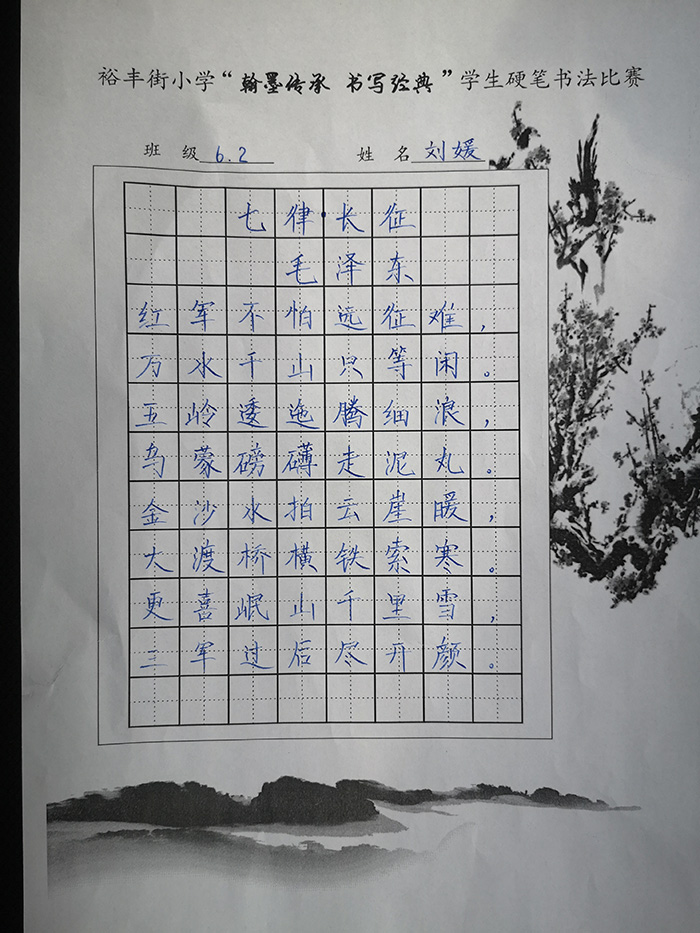 裕丰街小学“翰墨传承 书写经典”学生硬笔书法比赛
班 级 6.2 姓 名 刘媛
七律·长征
毛泽东
红军不怕远征难，
万水千山只等闲。
五岭逶迤腾细浪，
乌蒙磅礴走泥丸。
金沙水拍云崖暖，
大渡桥横铁索寒。
更喜岷山千里雪，
三军过后尽开颜。